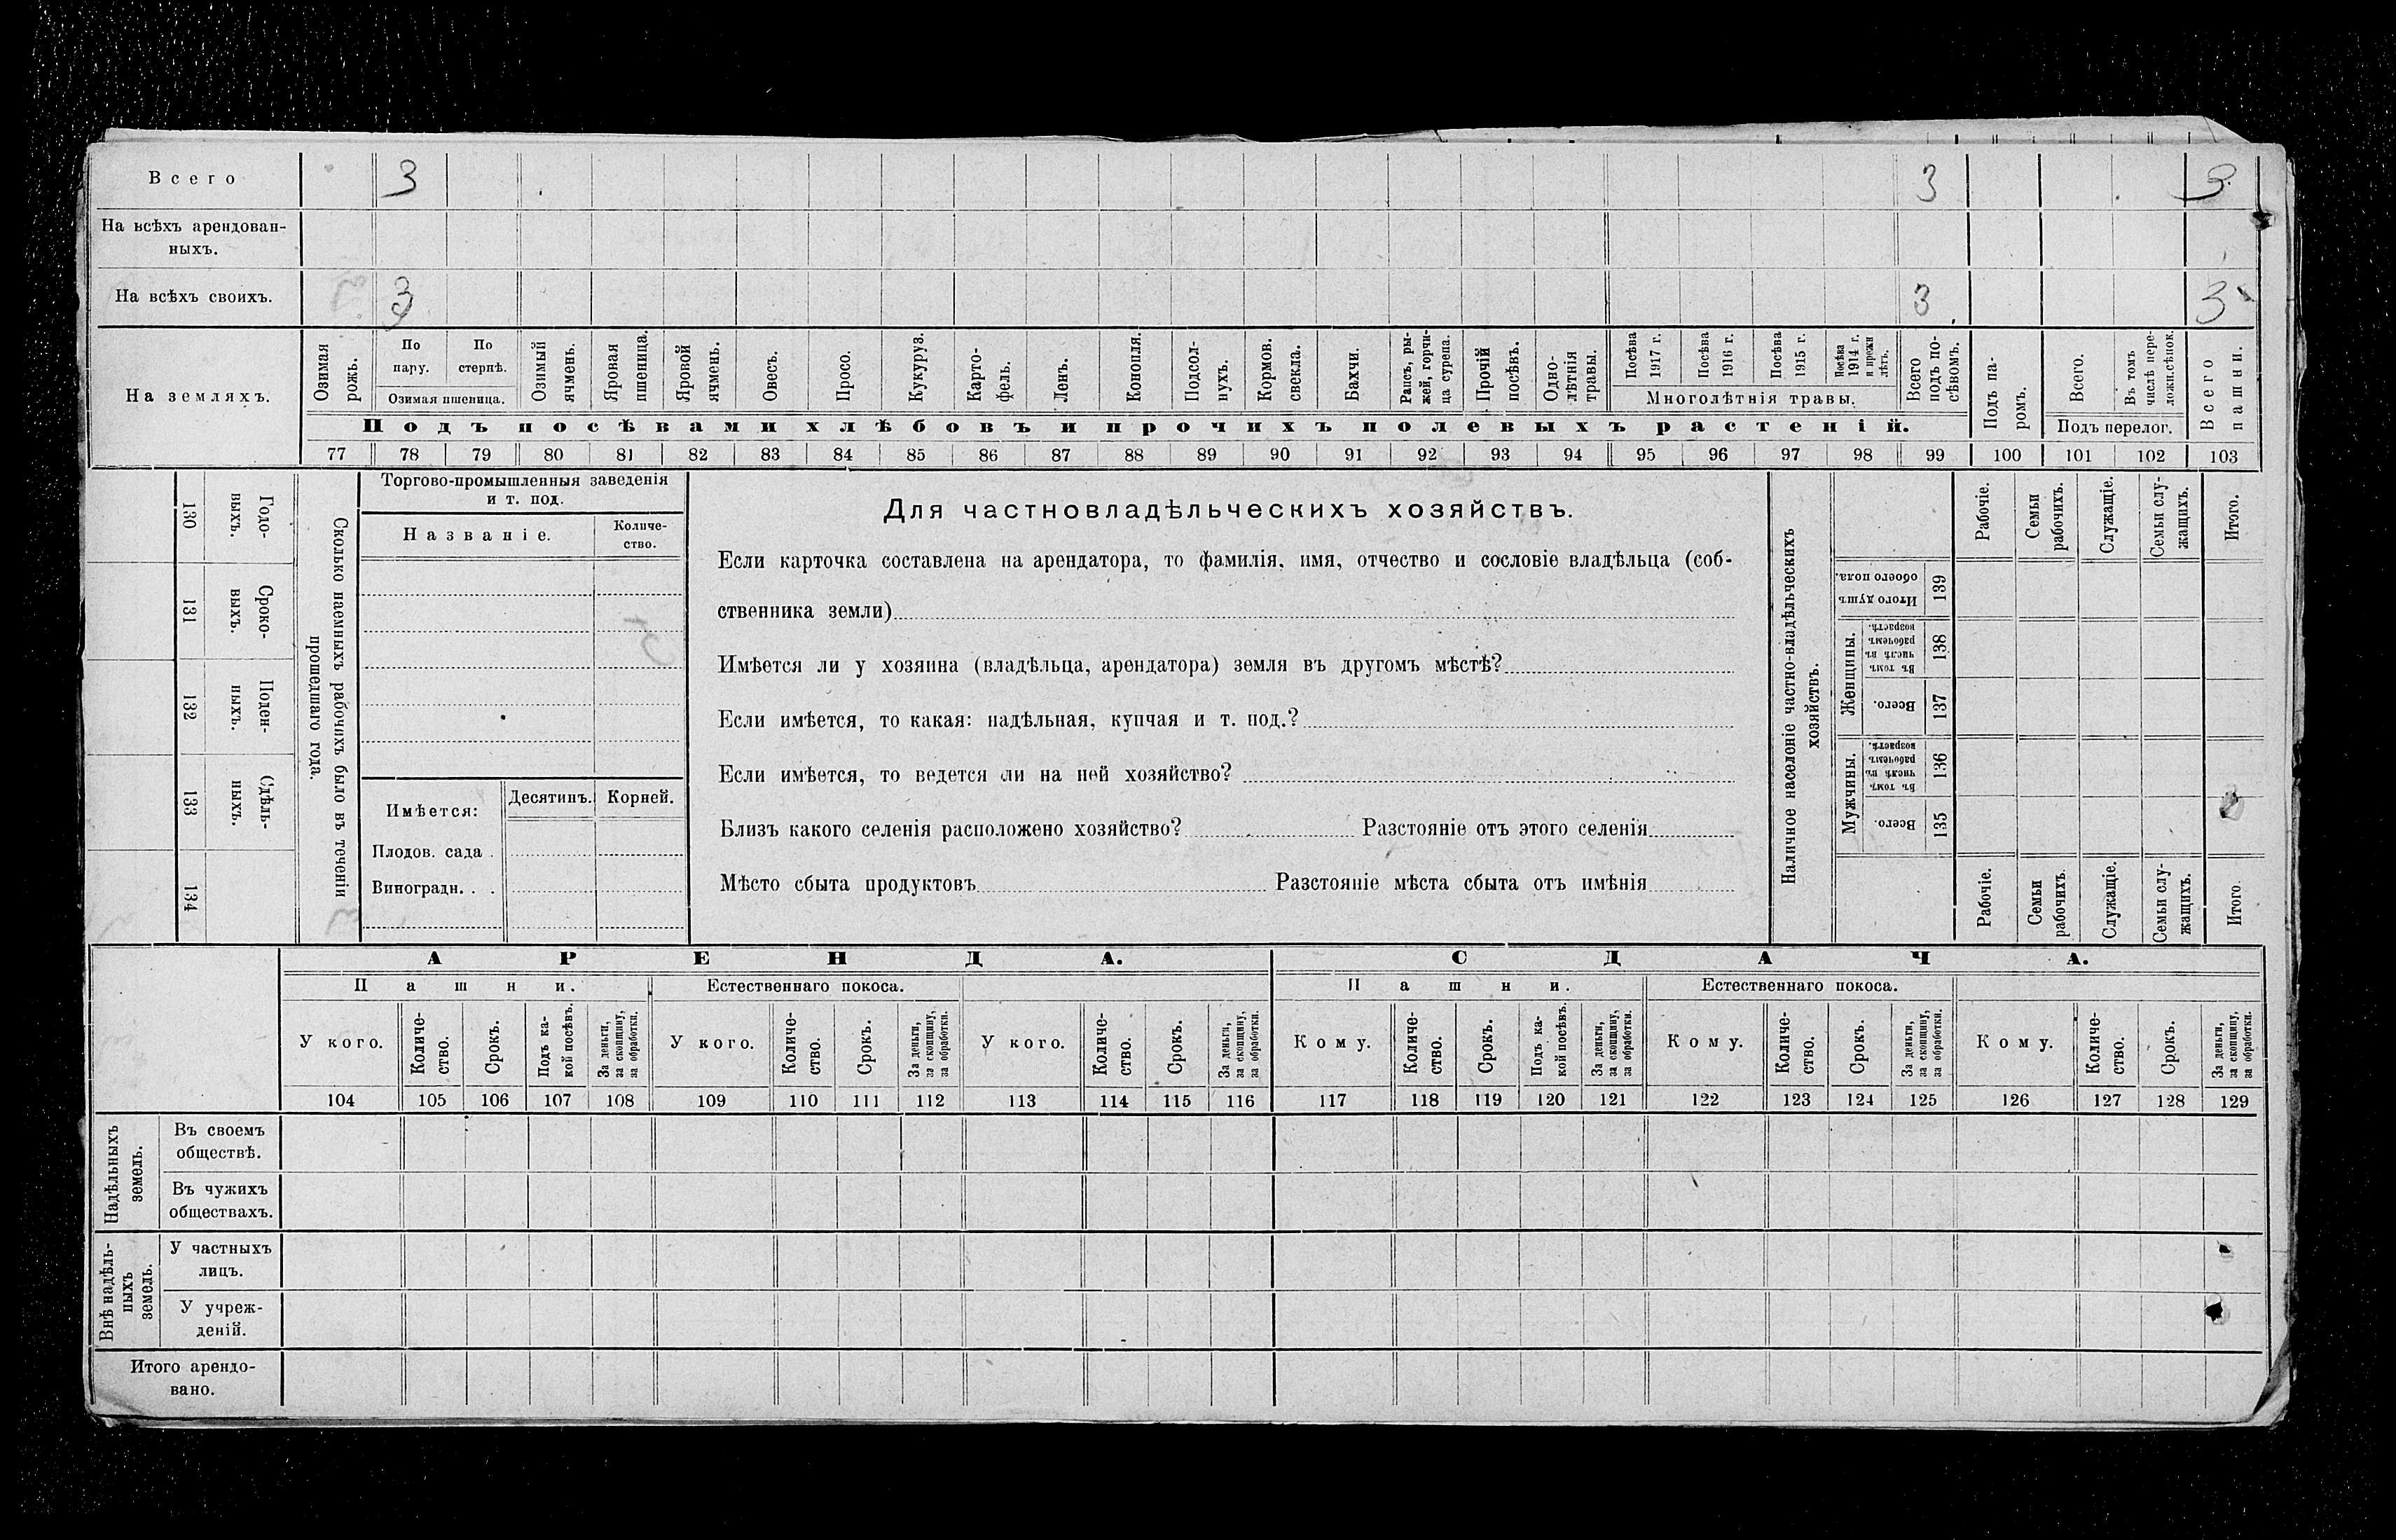 Всего 3 3 3
На всѣхъ арендован-
ныхъ.
На всѣхъ своихъ. 3 3 3
На земляхъ.
Озимая рожь.
По пару.
По стернѣ.
Озимая пшеница.
Озимый ячмень.
Яровая пшеница.
Яровой ячмень.
Овесъ.
Просо.
Кукуруз.
Карто-
фель.
Ленъ.
Конопля.
Подсол-
нухъ.
Кормов. свекла.
Бахчи.
Рапсъ, ры-
жей, горчи-
ца сурепа.
Прочій посѣвъ.
Одно-
лѣтнія травы.
Посѣва 1917 г.
Посѣва 1916 г.
Посѣва 1915 г.
Посѣва 1914 г. и прежн лѣтъ.
Многолѣтнія травы.
Всего подъ по-
сѣвомъ.
Подъ па-
ромъ.
Всего.
Въ томъ числѣ пере-
ложн.сѣнок.
Подъ перелог.
Всего пашни.
Подъ посѣвами хлѣбовъ и прочихъ полевыхъ растеній.
77 78 79 80 81 82 83 84 85 86 87 88 89 90 91 92 93 94 95 96 97 98 99 100 101 102 103
130 Годо-
выхъ.
131 Сроко-
выхъ.
132 Поден-
ныхъ.
133 Сдѣль-
ныхъ.
134
Сколько наемныхъ рабочихъ было въ теченіи
прошедшаго года.
Торгово-промышленныя заведенія
и т. под.
Названіе.
Количе-
ство.
Имѣется:
Десятинъ. Корней.
Плодов. сада .
Виноградн. . .
Для частновладѣльческихъ хозяйствъ.
Если карточка составлена на арендатора, то фамилія, имя, отчество и сословіе владѣльца (соб-
ственника земли)
Имѣется ли у хозяина (владѣльца, арендатора) земля въ другомъ мѣстѣ?
Если имѣется, то какая: надѣльная, купчая и т. под.?
Если имѣется, то ведется ли на ней хозяйство?
Близъ какого селенія расположено хозяйство? Разстояніе отъ этого селенія
Мѣсто сбыта продуктовъ Разстояніе мѣста сбыта отъ имѣнія
Наличное населеніе частно-владѣльческихъ
хозяйствъ.
Рабочіе.
Семьи рабочихъ.
Служащіе.
Семьи слу-
жащихъ.
Итого.
Итого душъ обоего пола. 139
Женщины.
Въ томъ числѣ въ рабочемъ возрастѣ. 138
Всего. 137
Мужчины.
Въ томъ числѣ въ рабочемъ возрастѣ. 136
Всего. 135
Рабочіе.
Семьи рабочихъ
Служащіе.
Семьи слу-
жащихъ.
Итого
АРЕНДА. СДАЧА.
Пашни. Естественнаго покоса. Пашни. Естественнаго покоса.
У кого.
Количе-
ство.
Срокъ.
Подъ ка-
кой посѣвъ.
За деньги, за скопщину, за обработки.
У кого.
Количе-
ство.
Срокъ.
За деньги, за скопщину, за обработки.
У кого.
Количе-
ство.
Срокъ.
За деньги, за скопщину, за обработки.
Кому.
Количе-
ство.
Срокъ.
Подъ ка-
кой посѣвъ.
За деньги, за скопщину, за обработки.
Кому.
Количе-
ство.
Срокъ.
За деньги, за скопщину, за обработки.
Кому.
Количе-
ство.
Срокъ.
За деньги, за скопщину, за обработки.
104 105 106 107 108 109 110 111 112 113 114 115 116 117 118 119 120 121 122 123 124 125 126 127 128 129
Надѣльныхъ
земель.
Въ своемъ
обществѣ.
Въ чужихъ
обществахъ.
Внѣ надѣль-
ныхъ
земель.
У частныхъ
лицъ.
У учреж-
деній.
Итого арендо-
вано.